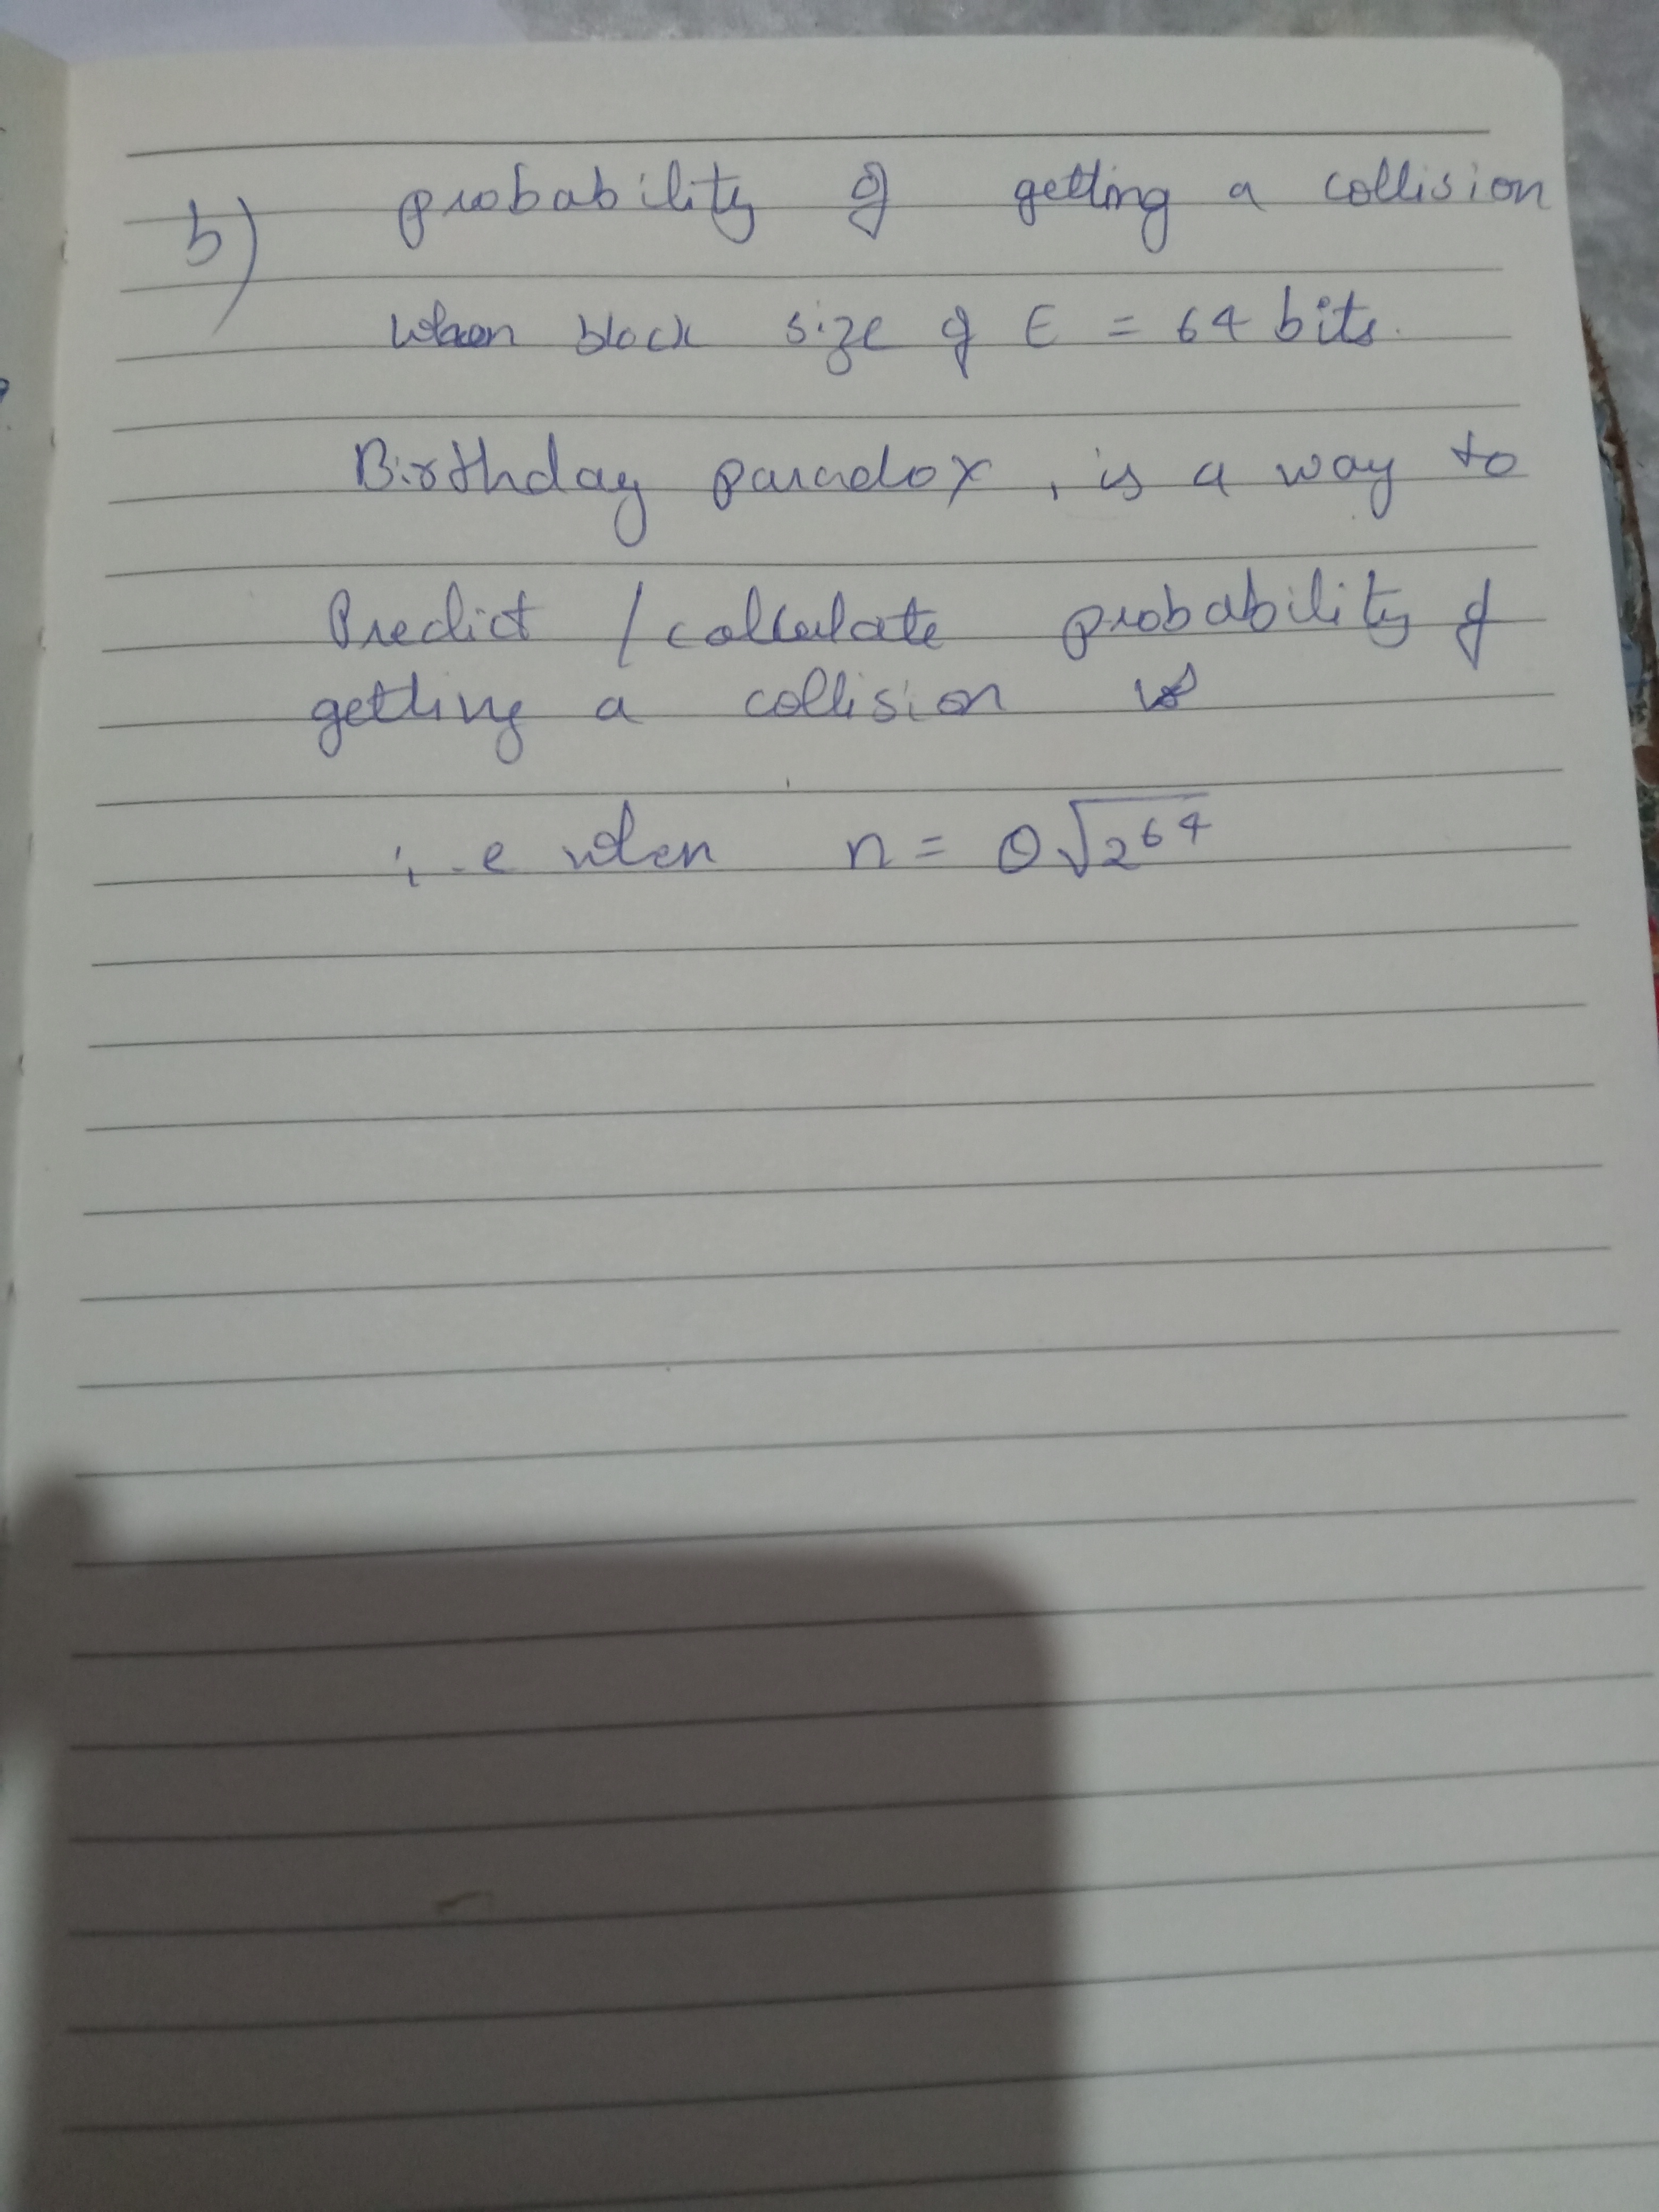 b) probability of getting a collision
when block size of E = 64 bits.
Birthday paradox, is a way to
Predict / calculate probability of
getting a collision
i.e when n = θ√2^64